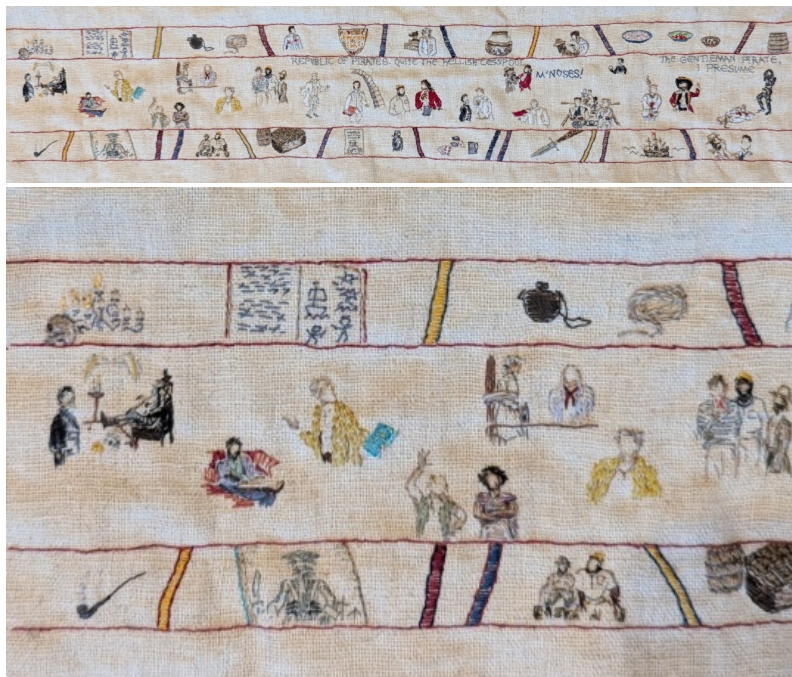 REPUBLIC OF PIRATES. QUITE THE HELLISH CESSPOOL
M'NOSES!
THE GENTLEMAN PIRATE,
I PRESUME